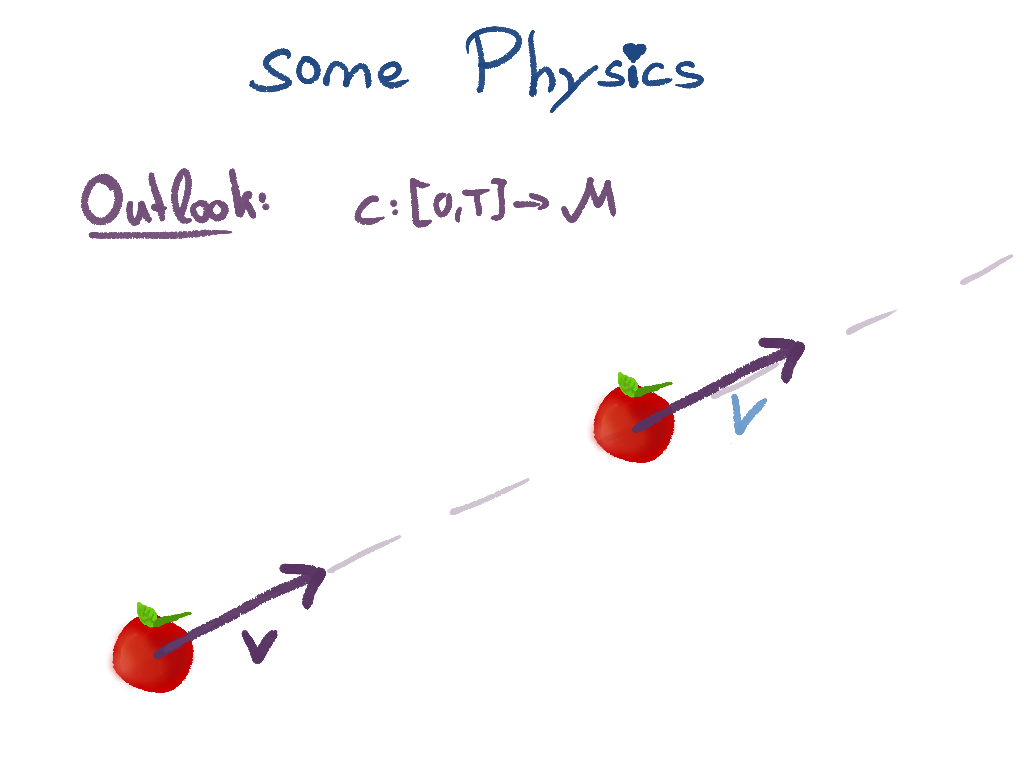 some Physics
Outlook: c:[0,T]→M
v
v